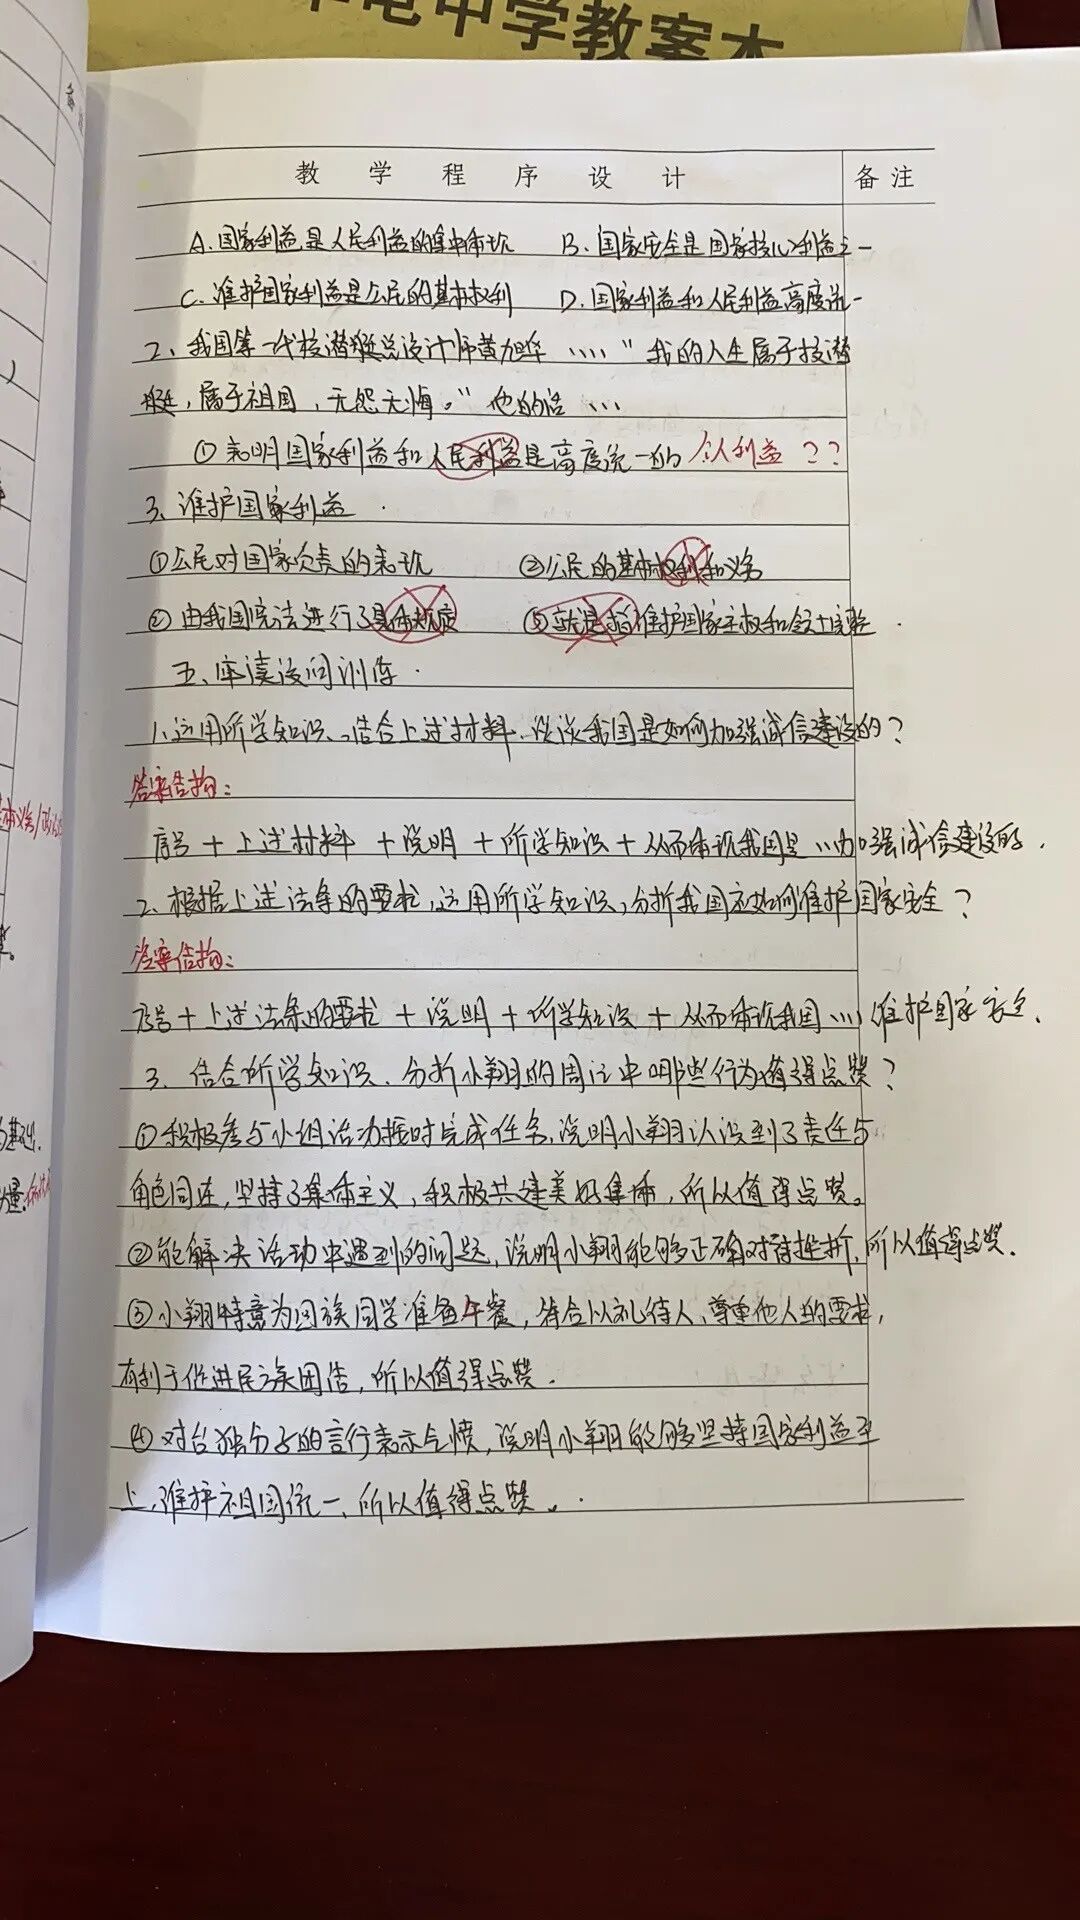 中学教案本
教学程序设计 备注
A. 国家利益是人民利益的集中体现 B. 国家安全是国家核心利益之一
C. 维护国家利益是公民的基本权利 D. 国家利益和人民利益高度统一
2、我国第一代核潜艇总设计师黄旭华 ····"我的人生属于核潜
艇，属于祖国，无怨无悔。"他的话 ···
① 表明国家利益和人民利益是高度统一的 个人利益 ？？
3、维护国家利益
①公民对国家负责的表现 ②公民的基本权利和义务
② 由我国宪法进行了具体规定 ③就是指维护国家主权和领土完整
五、审读设问训练
1、运用所学知识、结合上述材料，谈谈我国是如何加强诚信建设的？
答案结构：
序号 + 上述材料 + 说明 + 所学知识 + 从而体现我国是…加强诚信建设的.
2、根据上述法条的要求，运用所学知识，分析我国应如何维护国家安全？
答案结构：
序号 + 上述法条的要求 + 说明 + 所学知识 + 从而体现我国 ···· 维护国家安全.
3、结合所学知识、分析小翔的周记中哪些行为值得点赞？
①积极参与小组活动按时完成任务，说明小翔认识到了责任与
角色同在，坚持了集体主义，积极共建美好集体，所以值得点赞。
②能解决活动中遇到的问题，说明小翔能够正确对待挫折，所以值得点赞.
③小翔特意为回族同学准备午餐，符合以礼待人、尊重他人的要求，
有利于促进民族团结，所以值得点赞.
④对台独分子的言行表示气愤，说明小翔能够坚持国家利益至
上，维护祖国统一，所以值得点赞。